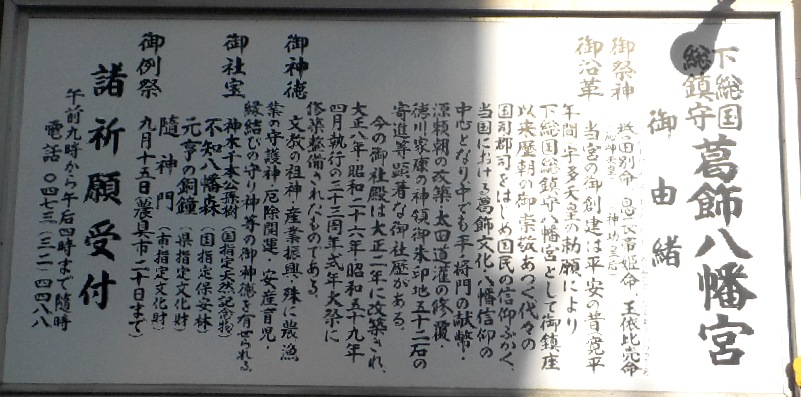 下総国
総鎮守
葛飾八幡宮
御由緒
御祭神
誉田別命 息長帯姫命 玉依比売命
(応神天皇) (神功皇后)
御沿革
当宮の御創建は平安の昔、寛平
年間、宇多天皇の勅願により
下総国総鎮守八幡宮として御鎮座
以来歴朝の御崇敬あつく代々の
国司郡司をはじめ国民の信仰ふかく、
当国における葛飾文化、八幡信仰の
中心となり中でも平将門の献幣・
源頼朝の改築・太田道灌の修覆・
徳川家康の神領御朱印地五十二石の
寄進等顕著な御社歴がある。
今の御社殿は大正二年に改築され、
大正八年・昭和二十六年・昭和五十九年
四月執行の三十三周年式年大祭に
修築整備されたものである。
御神徳
文教の祖神・産業振興・殊に農漁
業の守護神・厄除開運・安産育児・
縁結びの守り神等の御神徳を有せられる。
御社宝
神木千本公孫樹(国指定天然記念物)
不知八幡森(国指定保安林)
元亨の銅鐘(県指定文化財)
隨神門(市指定文化財)
御例祭
九月十五日(農具市二十日まで)
諸祈願受付
午前九時から午后四時まで隨時
電話〇四七三(三二)四四八八